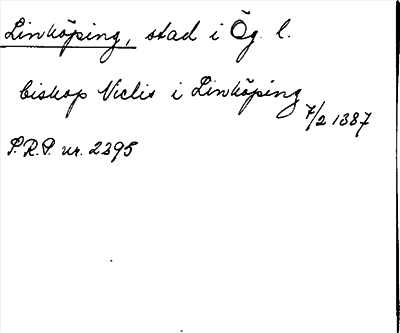 Linköping, stad i Ög. l.
biskop Niclis i Linköping 7/2 1387
P.R.P. nr. 2395